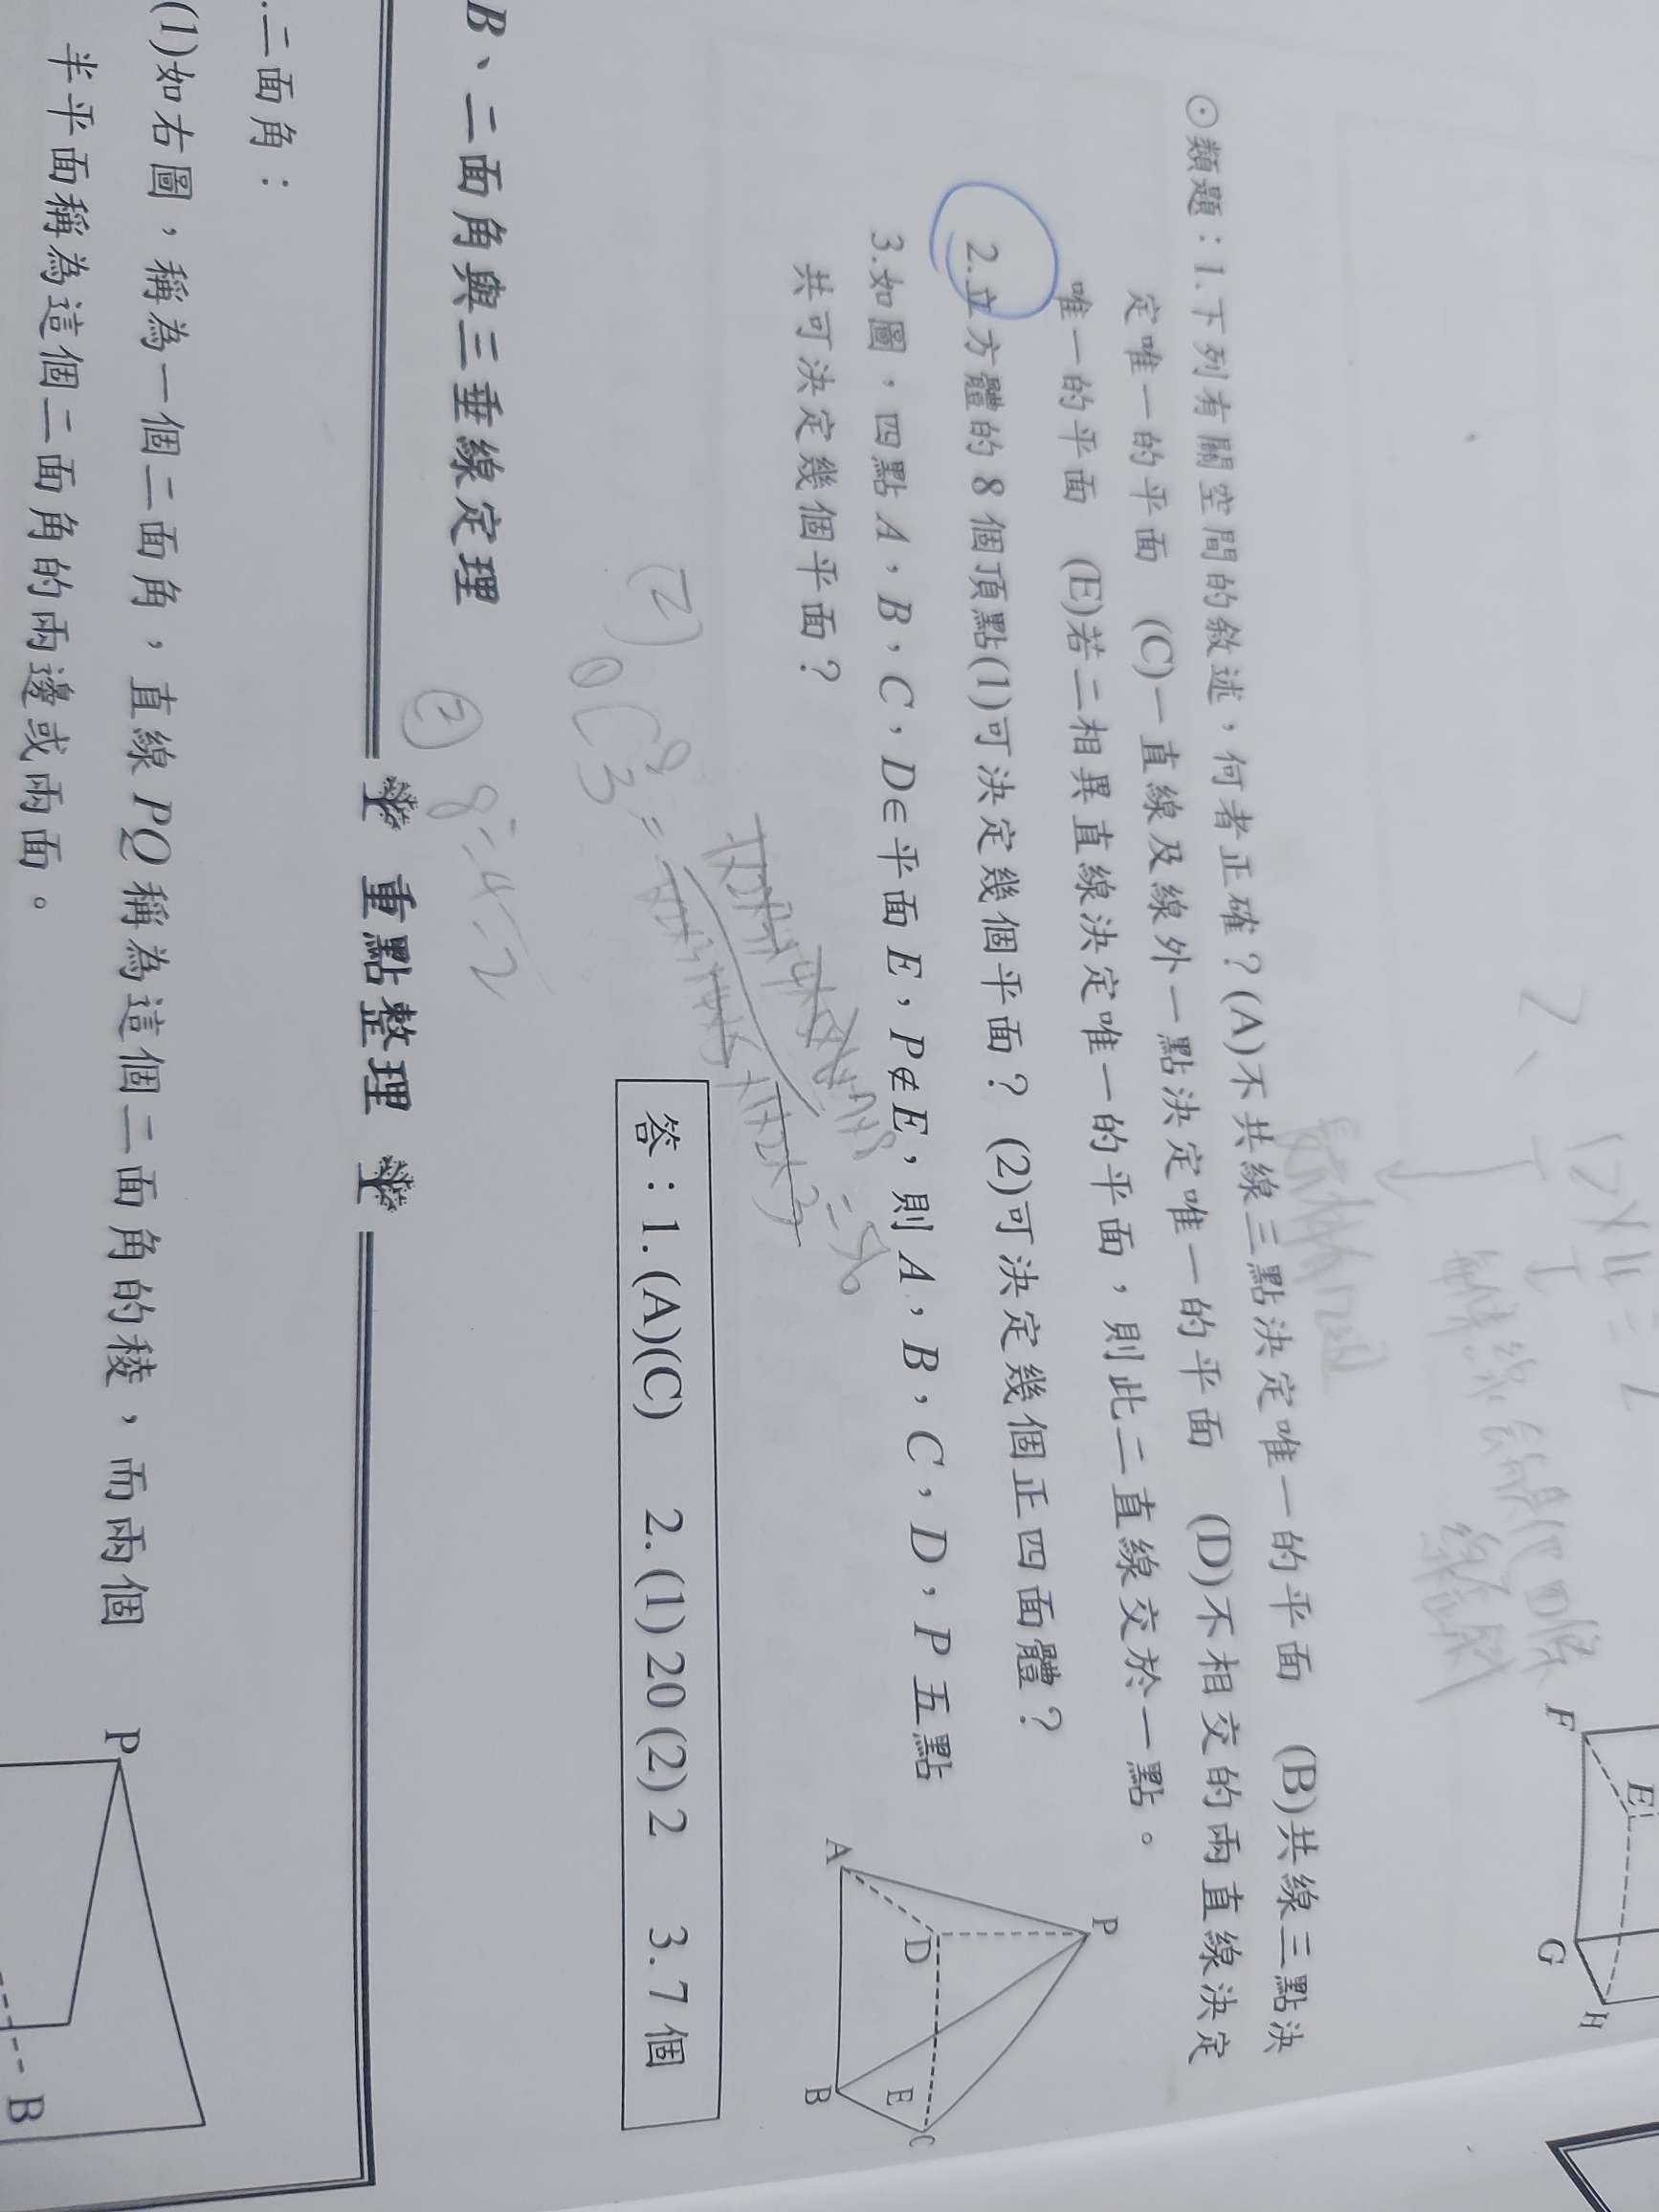 F
E
G
H
⊙類題：1.下列有關空間的敘述，何者正確？(A)不共線三點決定唯一的平面 (B)共線三點決
定唯一的平面 (C)一直線及線外一點決定唯一的平面 (D)不相交的兩直線決定
唯一的平面 (E)若二相異直線決定唯一的平面，則此二直線交於一點。
2.立方體的 8 個頂點(1)可決定幾個平面？(2)可決定幾個正四面體？
3.如圖，四點 A，B，C，D∈平面 E，P∉E，則 A，B，C，D，P 五點
共可決定幾個平面？
P
A
D
B
E
C
答：1.(A)(C) 2.(1)20(2)2 3.7 個
(2)
② 8÷4=2
B、二面角與三垂線定理
重點整理
.二面角：
(1)如右圖，稱為一個二面角，直線 PQ 稱為這個二面角的稜，而兩個
半平面稱為這個二面角的兩邊或兩面。
P
B